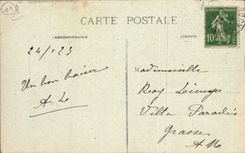 CARTE POSTALE
CORRESPONDANCE
24/1 23
Un bon baiser
A. L
10
Mademoiselle
Villa Paradis
Grasse
A M